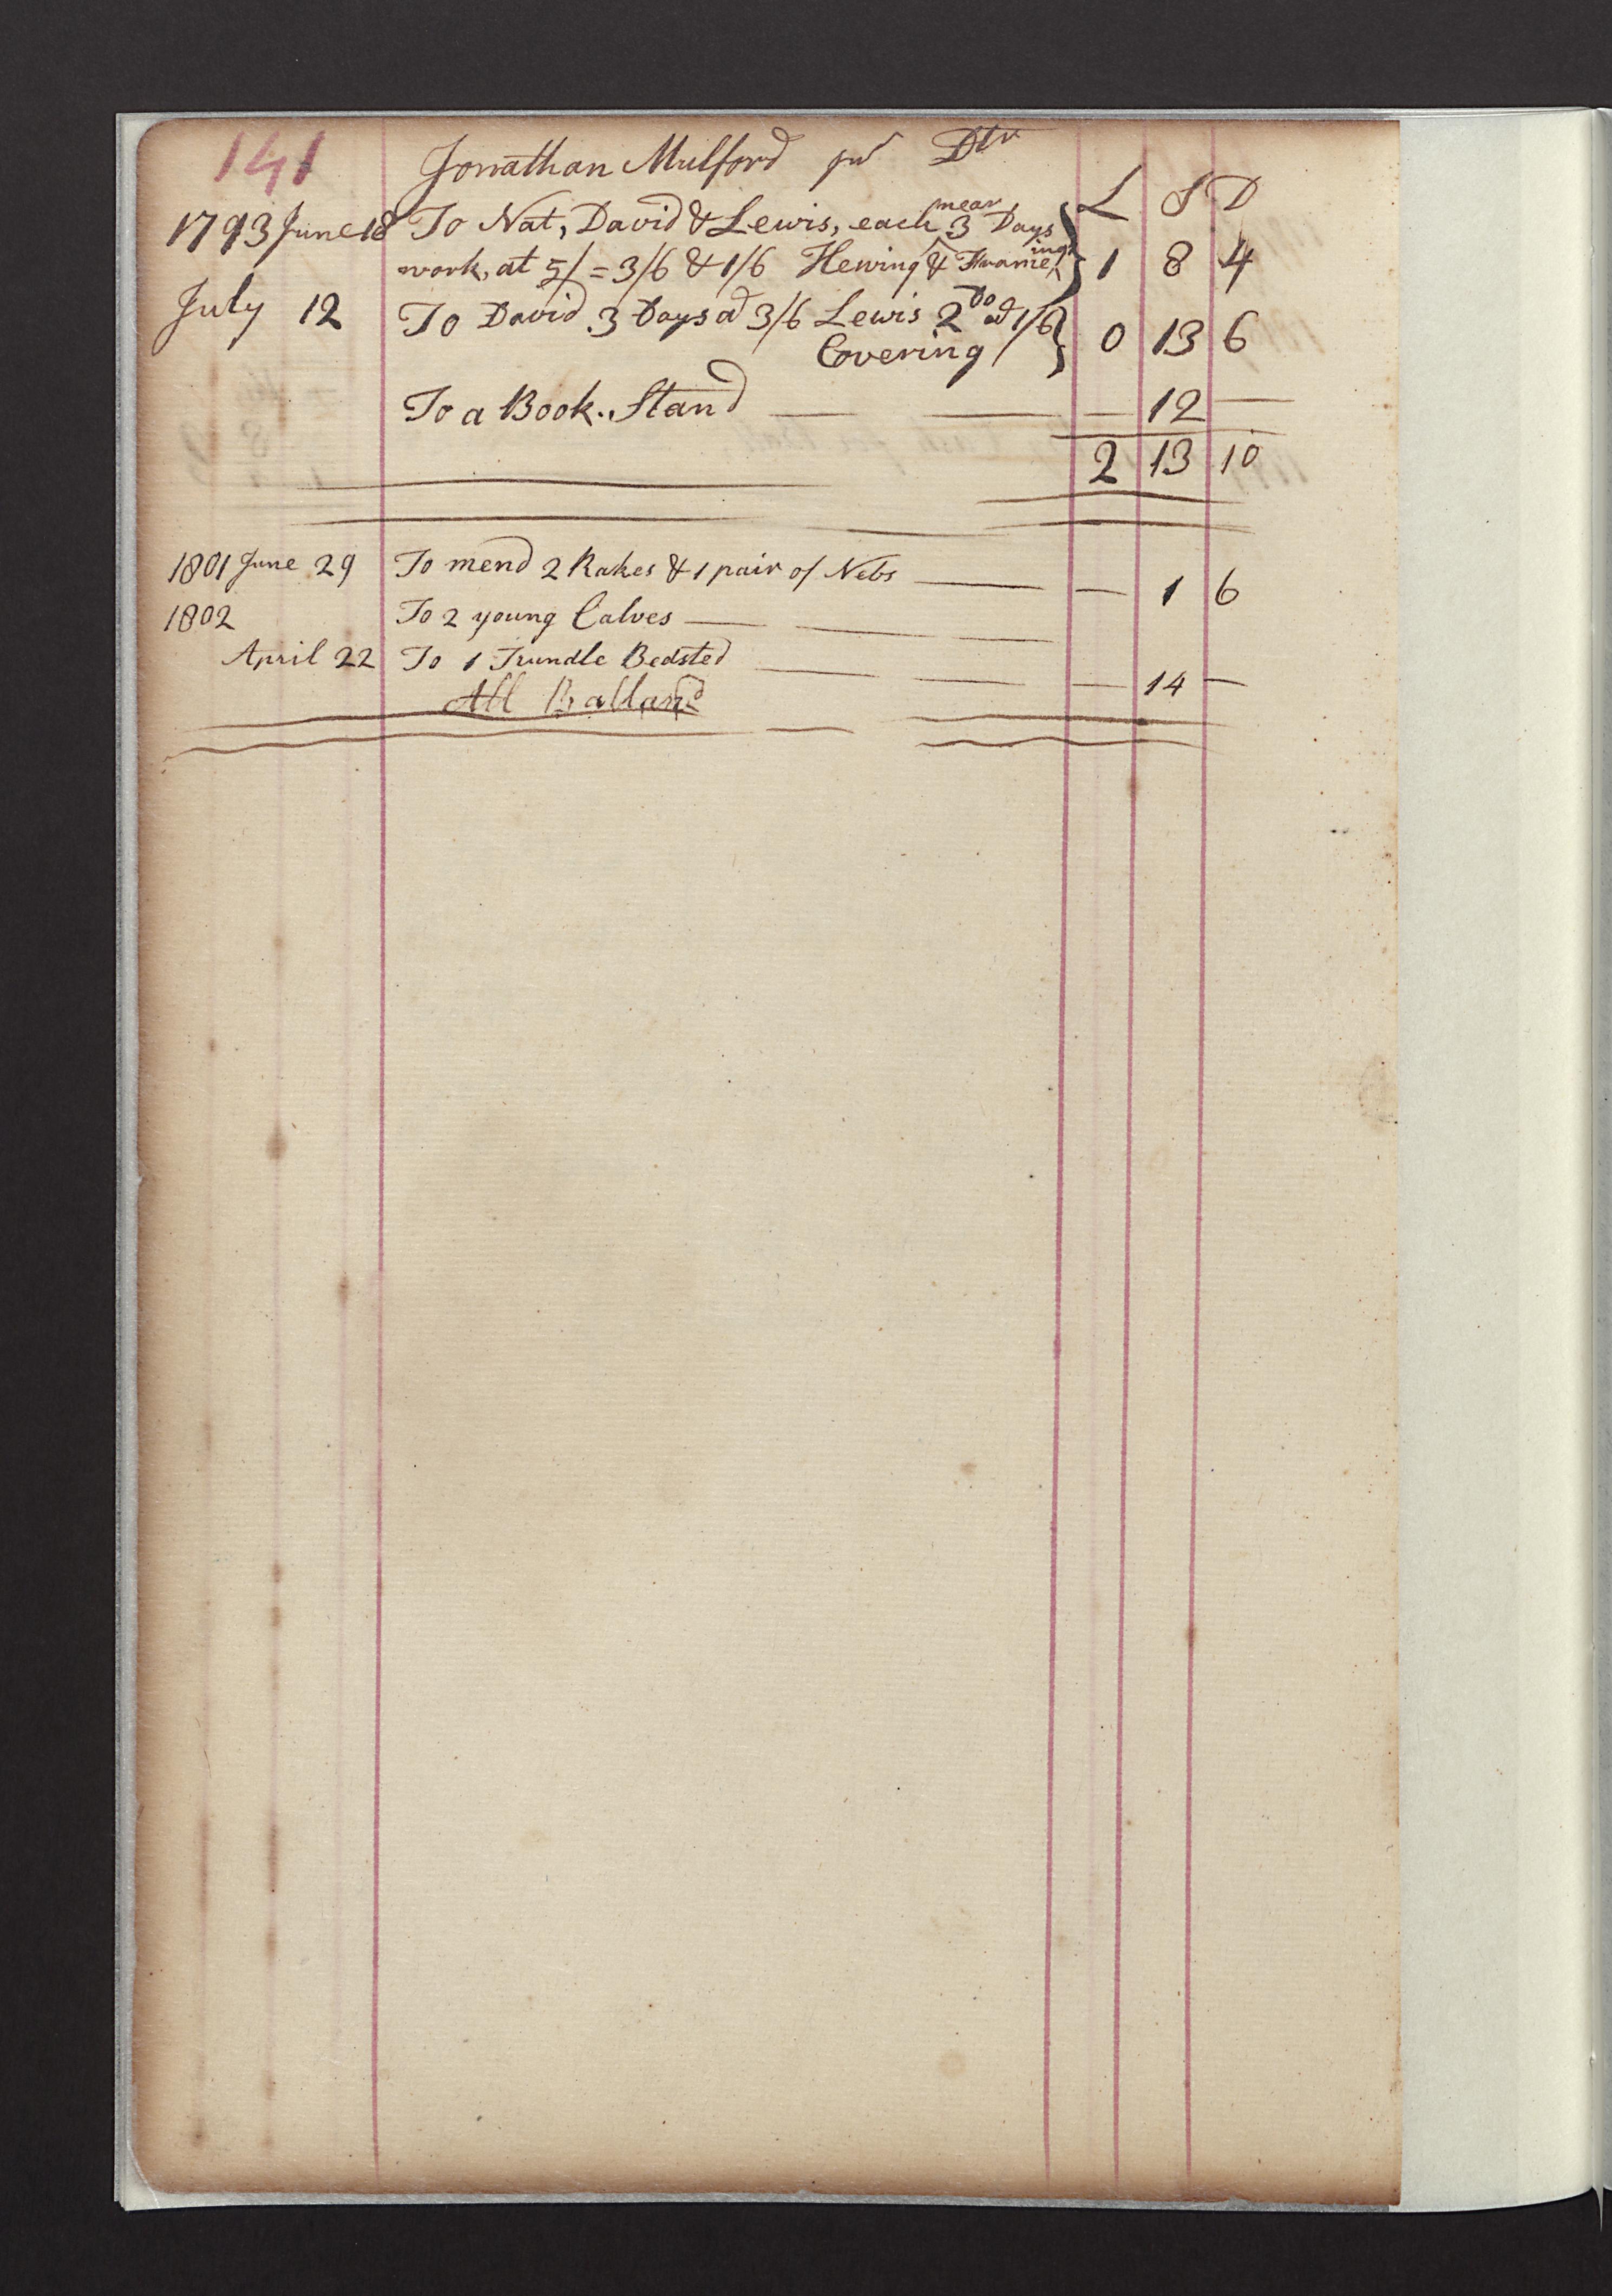 141 Jonathan Mulford jur Dtr
L S D
1793 June 18 To Nat, David & Lewis, each near 3 Days
work, at 5/ = 3/6 & 1/6 Hewing & Frameing 1 8 4
July 12 To David 3 Days ad 3/6 Lewis 2 Do ad 1/6
Covering 0 13 6
To a Book.. Stand — — — 12 —
2 13 10
1801 June 29 To mend 2 Rakes & 1 pair of Nebs — — 1 6
1802 To 2 young Calves — — —
April 22 To 1 Trundle Bedsted — — — 14 —
All Balland